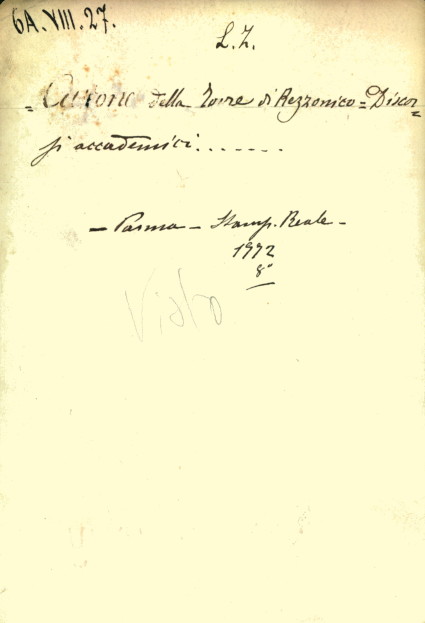 6A.VIII.27.
L.Z.
= della Torre di Rezzonico = Discor=
si accademici.......
– Parma – Stamp. Reale –
1772
8°
Visto